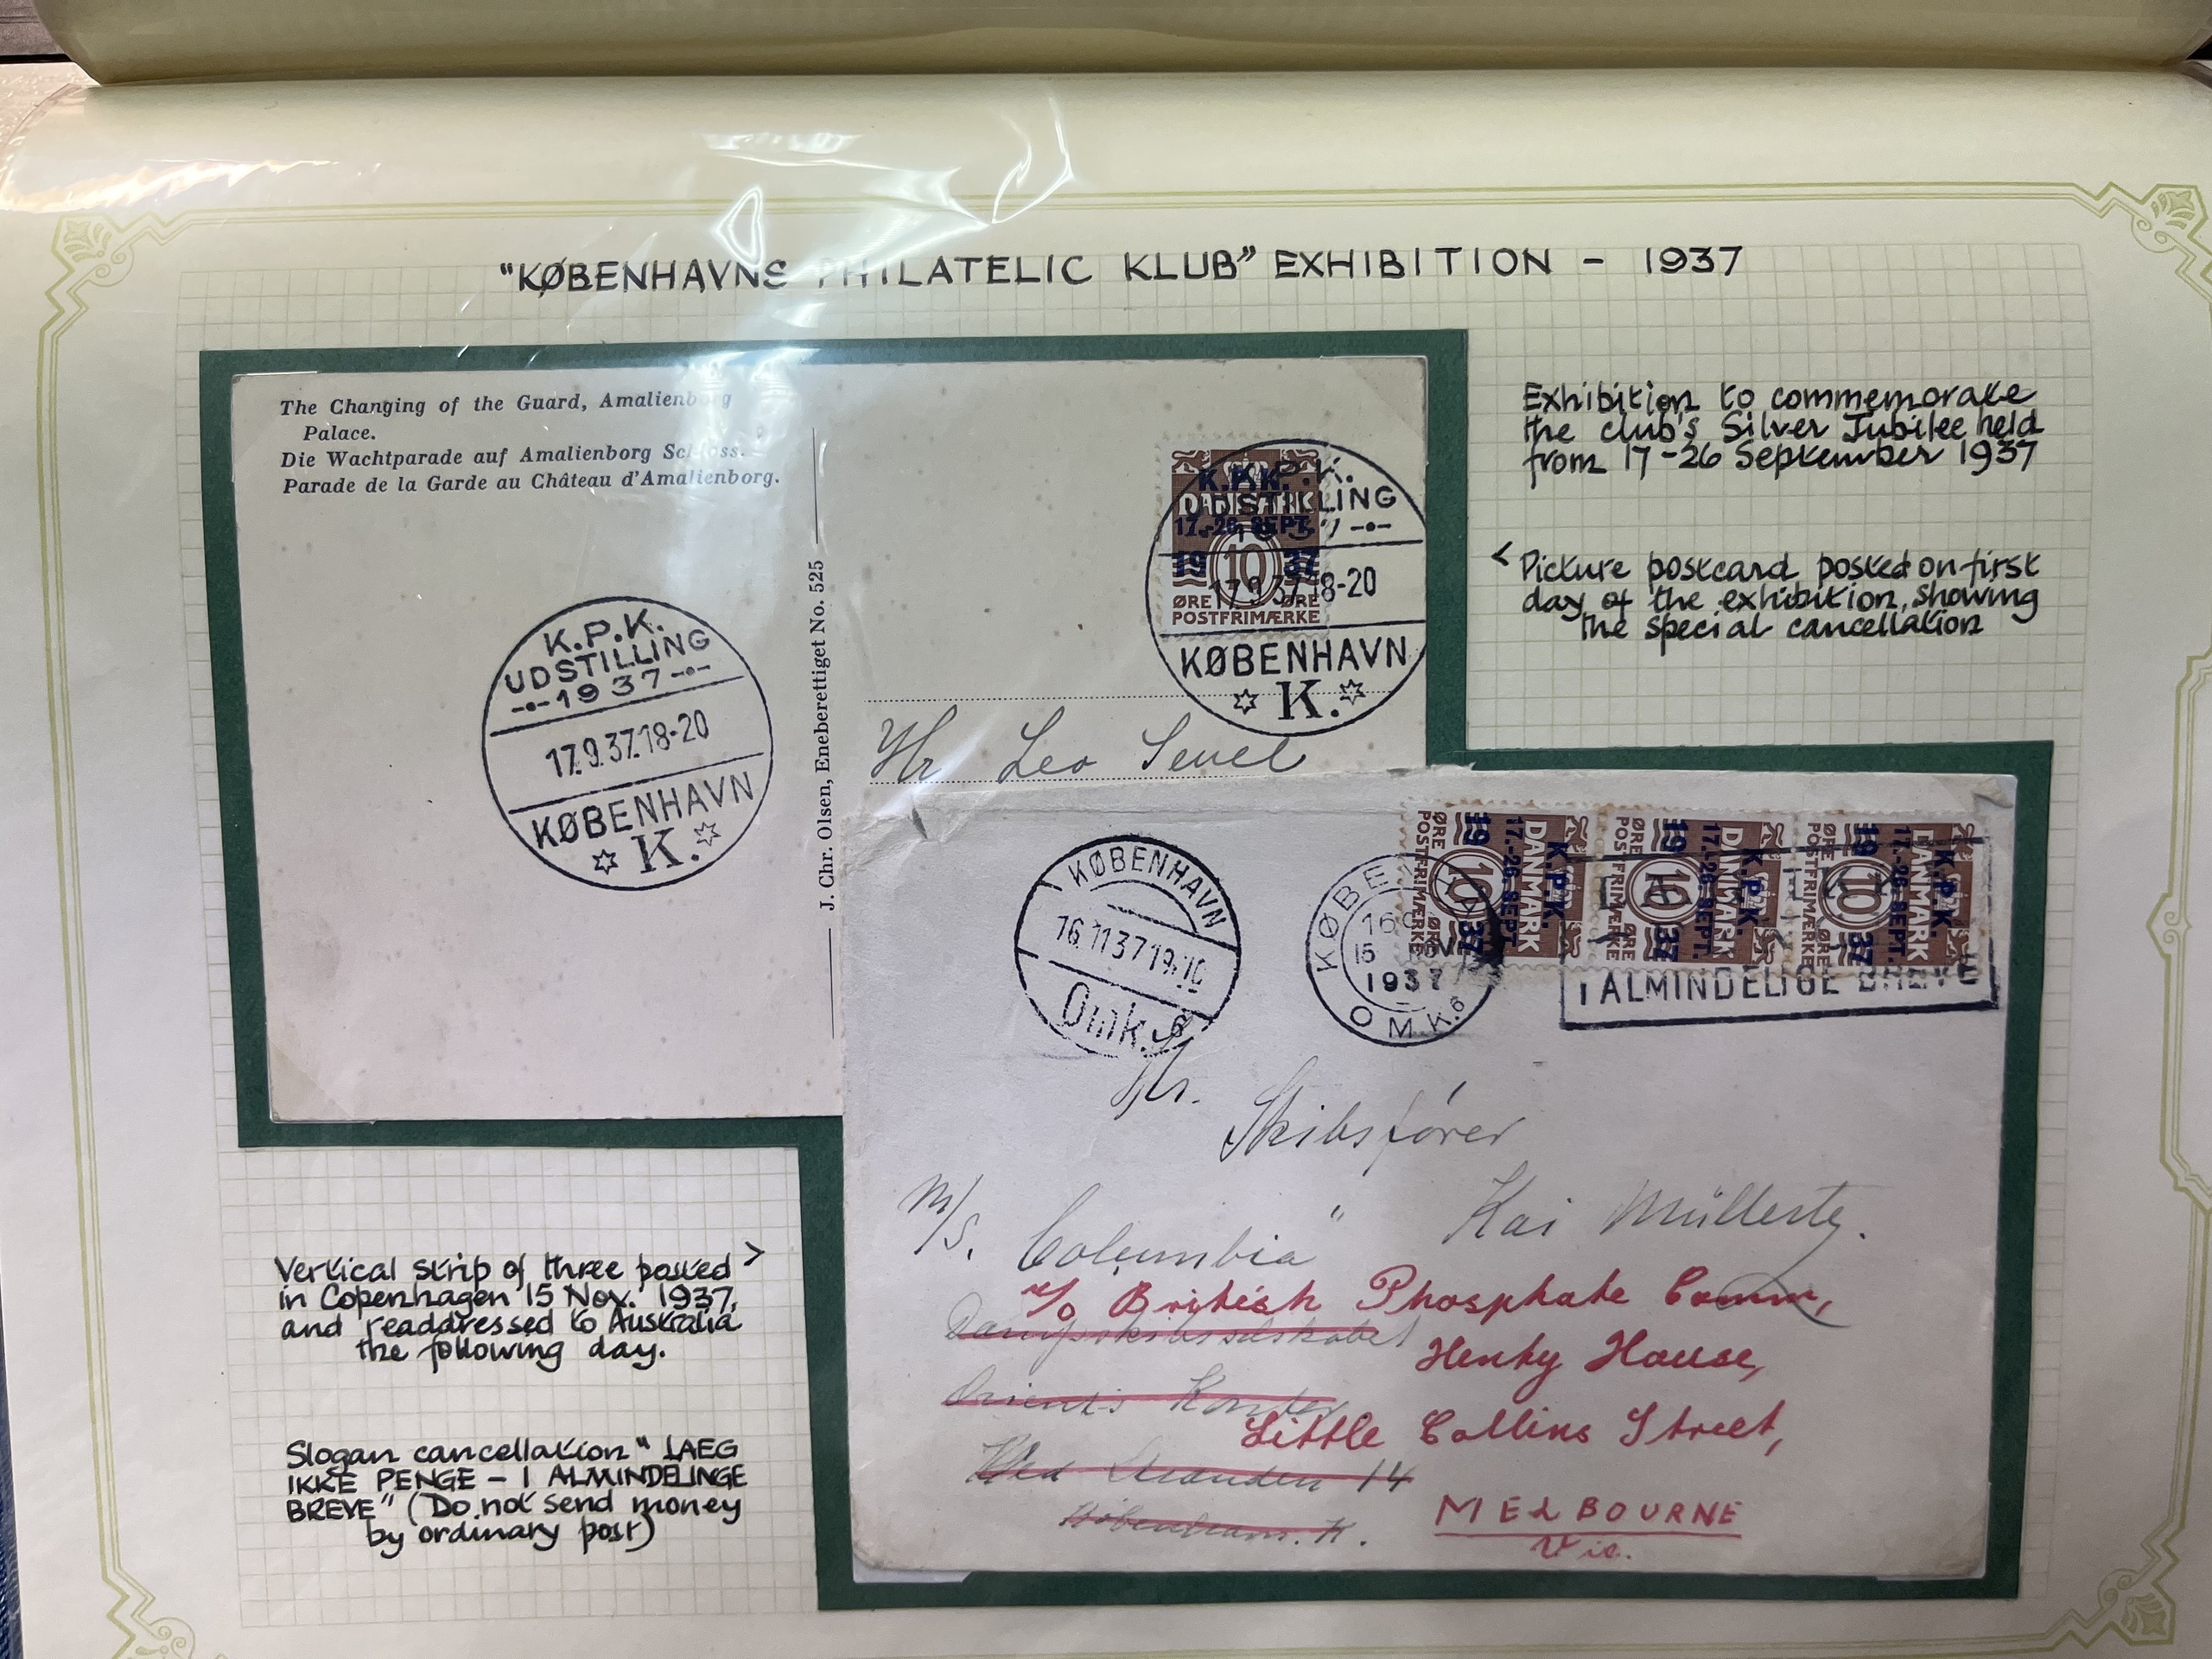 "KØBENHAVNS PHILATELIC KLUB" EXHIBITION - 1937
The Changing of the Guard, Amalienborg
Palace.
Die Wachtparade auf Amalienborg Schloss.
Parade de la Garde au Château d'Amalienborg.
K.P.K.
UDSTILLING
1937
17.9.37.18-20
KØBENHAVN
K.
J. Chr. Olsen, Eneberettiget No. 525
K.P.K.
DANMARK
17.-26. SEPT.
19 10 37
ØRE ØRE
POSTFRIMÆRKE
17.9.37.18-20
KØBENHAVN
K.
Hr Leo
Exhibition to commemorate
the club's Silver Jubilee held
from 17-26 September 1937
< Picture postcard posted on first
day of the exhibition, showing
the special cancellation
KØBENHAVN
16.11.37 19-
Omk. 6
KØBEN
1937
OMK.6
K.P.K.
DANMARK
17.-26. SEPT.
19 10 37
ØRE ØRE
POSTFRIMÆRKE
K.P.K.
DANMARK
17.-26. SEPT.
19 10 37
ØRE ØRE
POSTFRIMÆRKE
K.P.K.
DANMARK
17.-26. SEPT.
19 10 37
ØRE ØRE
POSTFRIMÆRKE
I ALMINDELIGE BREVE
Hr.
Skibsfører
Kai
M/S. Columbia"
c/o British Phosphate Comm,
Dampskibsselskabet
Henty House,
Orients Kontor
Little Collins Street,
Ved Stranden 14
MELBOURNE
København. K.
Vic.
Vertical strip of three posted >
in Copenhagen 15 Nov. 1937,
and readdressed to Australia
the following day.
Slogan cancellation "LAEG
IKKE PENGE - I ALMINDELINGE
BREVE" (Do not send money
by ordinary post)